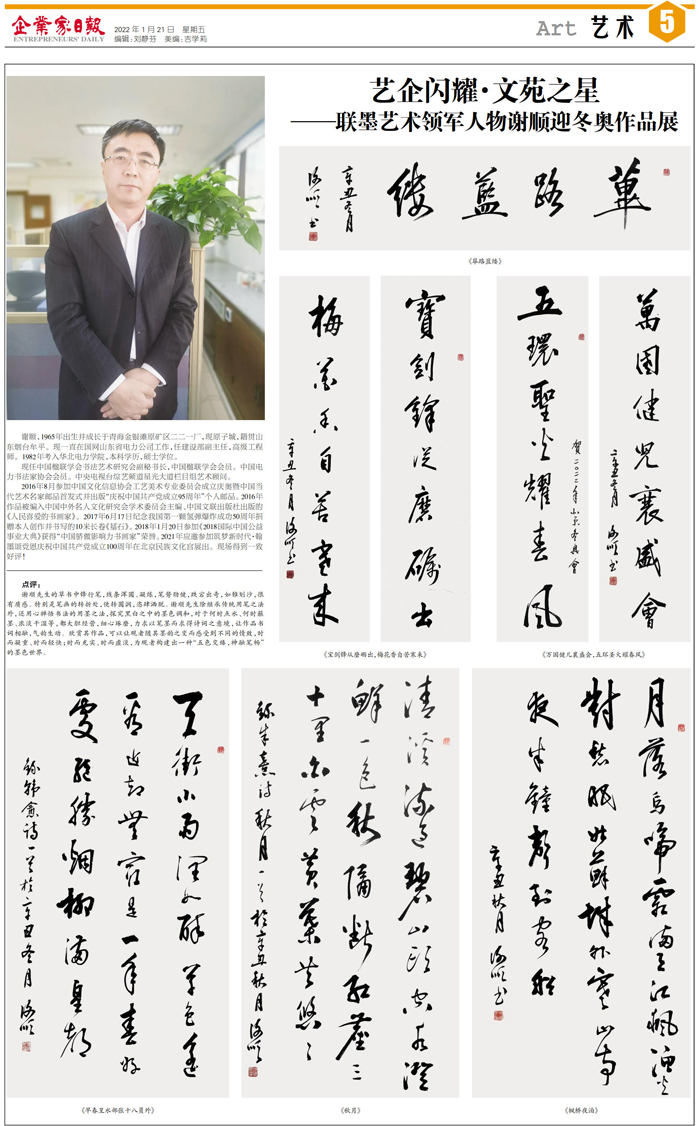 企業家日報
ENTREPRENEURS' DAILY
2022 年 1 月 21 日 星期五
编辑:刘静芬 美编:吉学莉
Art 艺术 5
艺企闪耀·文苑之星
——联墨艺术领军人物谢顺迎冬奥作品展
谢顺,1965年出生并成长于青海金银滩原矿区二二一厂,现原子城,籍贯山
东烟台牟平。现一直在国网山东省电力公司工作,任建设部副主任,高级工程
师。1982年考入华北电力学院,本科学历,硕士学位。
现任中国楹联学会书法艺术研究会副秘书长,中国楹联学会会员。中国电
力书法家协会会员。中央电视台综艺频道星光大道栏目组艺术顾问。
2016年8月参加中国文化信息协会工艺美术专业委员会成立庆暨中国当
代艺术名家邮品首发式并出版“庆祝中国共产党成立95周年”个人邮品。2016年
作品被编入中国中外名人文化研究会学术委员会主编、中国文联出版社出版的
《人民喜爱的书画家》。2017年6月17日纪念我国第一颗氢弹爆炸成功50周年捐
赠本人创作并书写的10米长卷《基石》。2018年1月20日参加《2018国际中国公益
事业大典》获得“中国骄傲影响力书画家”荣誉。2021年应邀参加筑梦新时代·翰
墨颂党恩庆祝中国共产党成立100周年在北京民族文化宫展出。现场得到一致
好评!
点评:
谢顺先生的草书中锋行笔,线条浑圆,凝练,笔势劲健,跌宕出奇,如锥划沙,很
有质感。特别是笔画的转折处,使转圆润,恣肆洒脱。谢顺先生除继承传统用笔之法
外,还用心钟悟书法的用墨之法,探究黑白之中的墨色调和,对于何时点水、何时蘸
墨、浓淡干湿等,都大胆经营,细心琢磨,力求以笔墨而求得诗词之意境,让作品书
词相融,气韵生动。欣赏其作品,可以让观者随其墨韵之变而感受到不同的情致,时
而凝重、时而轻快;时而充实、时而虚淡,为观者构建出一种“五色交臻,神融笔畅”
的墨色世界。
篳路藍縷
辛丑冬月
谢顺书
《筚路蓝缕》
寶劍鋒從磨礪出
梅花香自苦寒來
辛丑冬月 谢顺书
《宝剑锋从磨砺出,梅花香自苦寒来》
萬國健兒襄盛會
辛丑冬月 谢顺书
五環聖火耀春風
賀二〇二二年北京冬奥會
《万国健儿襄盛会,五环圣火耀春风》
天街小雨润如酥 草色遥
看近却無 最是一年春好
處 絕勝烟柳滿皇都
錄韩愈诗一首於辛丑冬月 谢顺
《早春呈水部张十八员外》
清溪流過碧山頭 空水澄
鮮一色秋 隔斷紅塵三
十里 白雲黄葉共悠悠
錄朱熹诗秋月一首於辛丑秋月 谢顺
《秋月》
月落烏啼霜滿天 江楓漁火
對愁眠 姑蘇城外寒山寺
夜半鐘聲到客船
辛丑秋月 谢顺书
《枫桥夜泊》